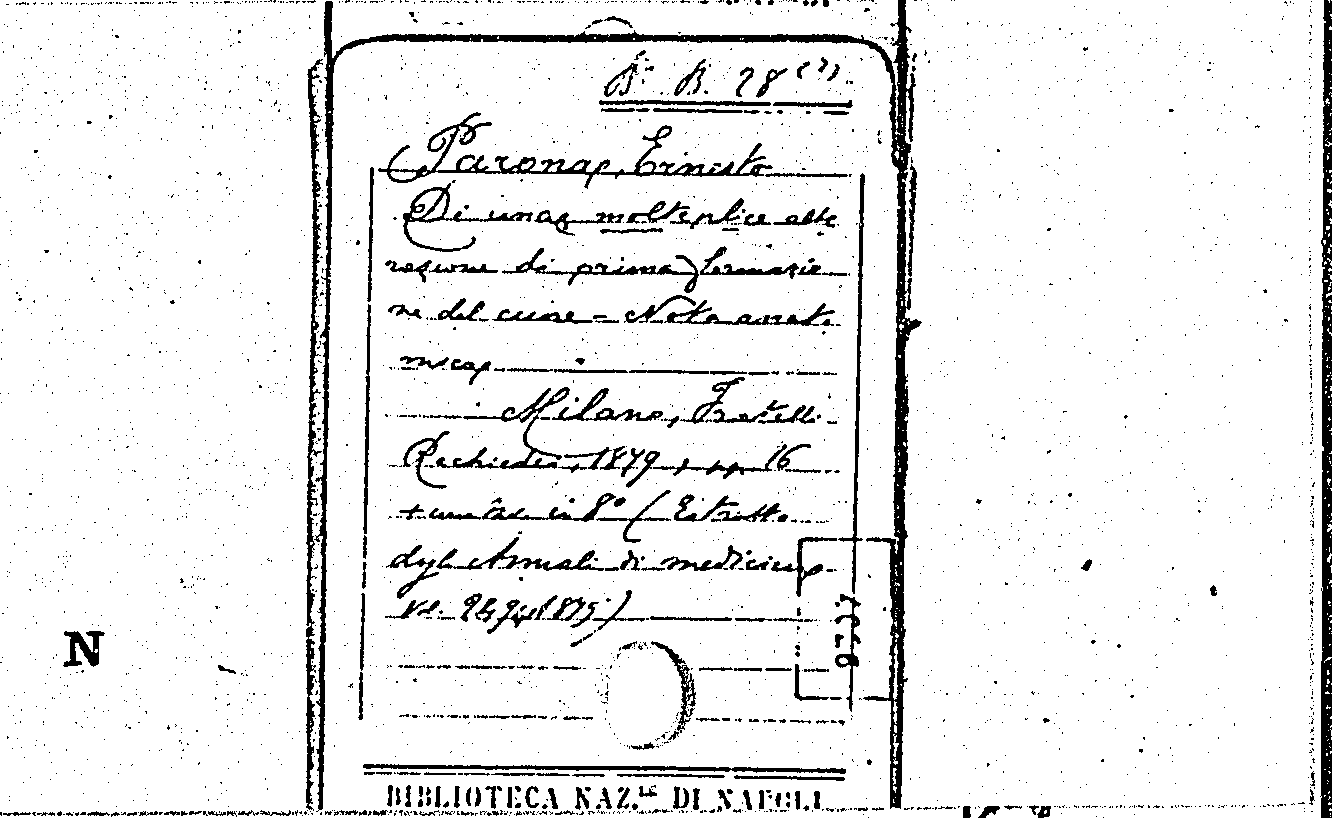 B. B. 28 (7)
Parona, Ernesto
Di una molteplice alte
razione di prima formazio
ne del cuore - Nota anato
mica
Milano, Fratelli
Rechiedei, 1879, pp. 16
+ una tav. in 8° (Estratto
dagli Annali di medicina
Vol. 1879)
N
BIBLIOTECA NAZ.LE DI NAPOLI